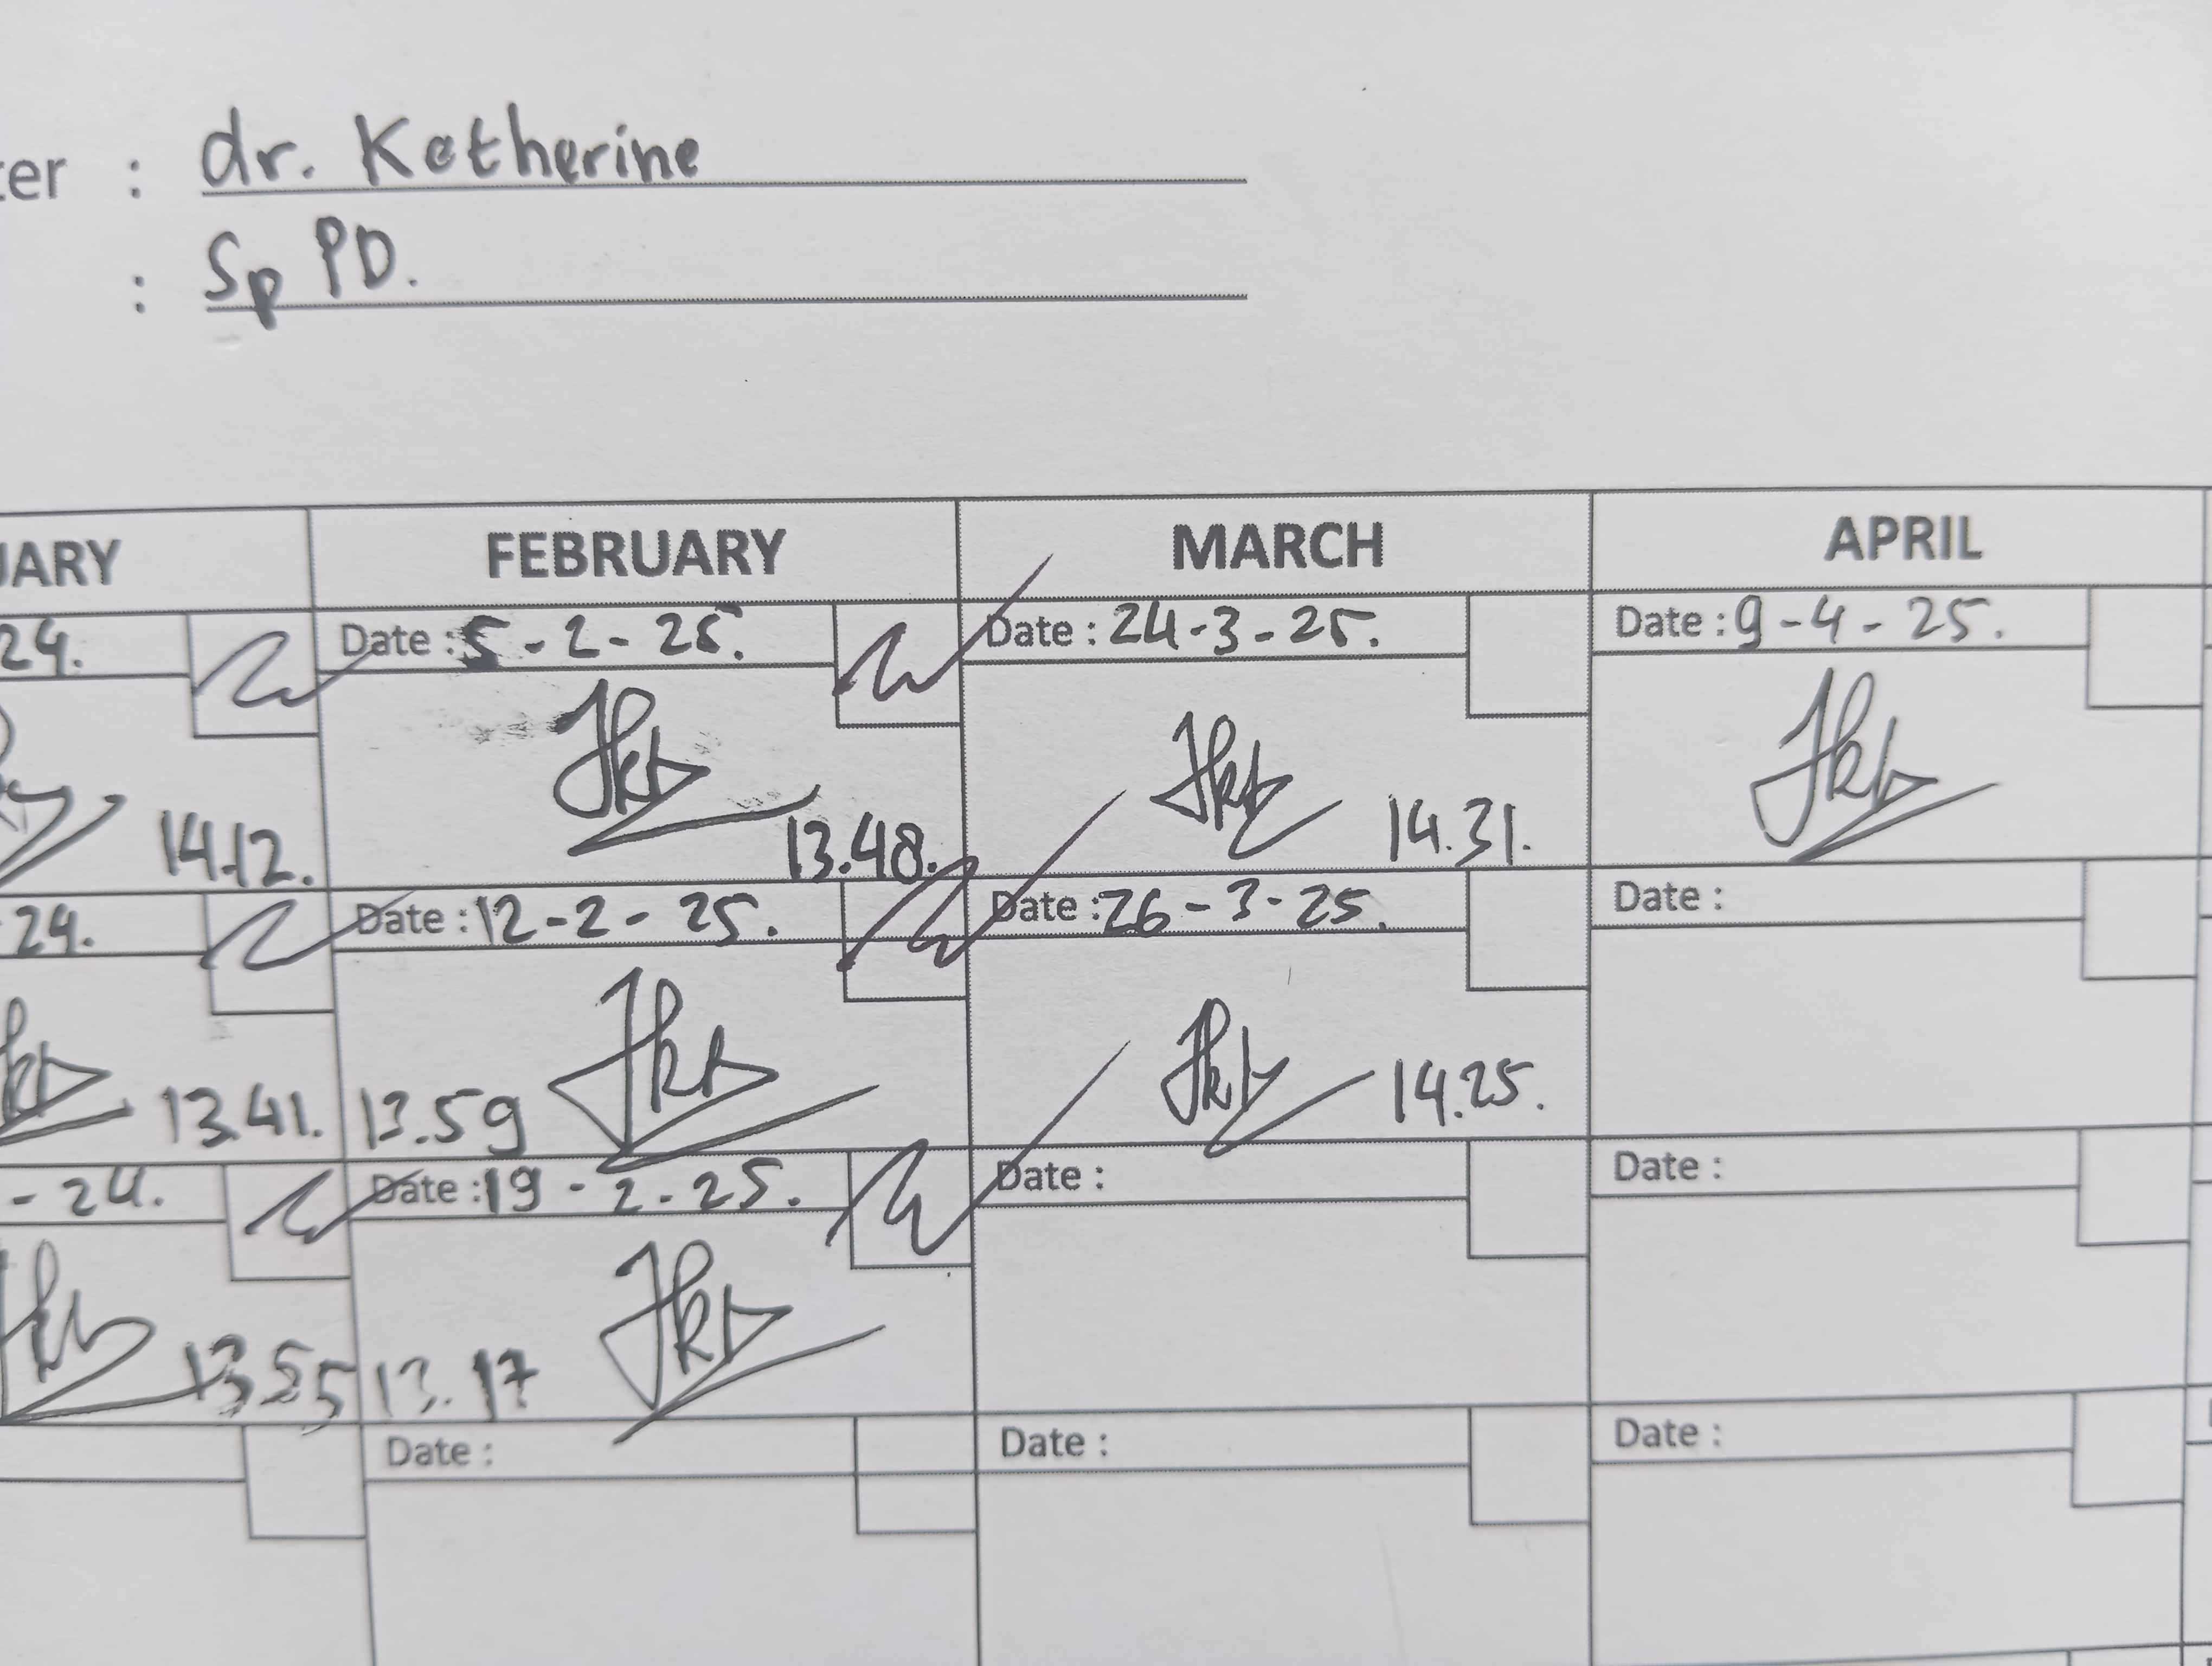 ter : dr. Katherine
: Sp PD.
UARY FEBRUARY MARCH APRIL
24. Date : 5 - 2 - 25. Date : 24 - 3 - 25. Date : 9 - 4 - 25.
14.12. 13.48. 14.31.
24. Date : 12 - 2 - 25. Date : 26 - 3 - 25. Date :
13.41. 13.59 14.25.
- 24. Date : 19 - 2 - 25. Date : Date :
13.55 13.17
Date : Date : Date :